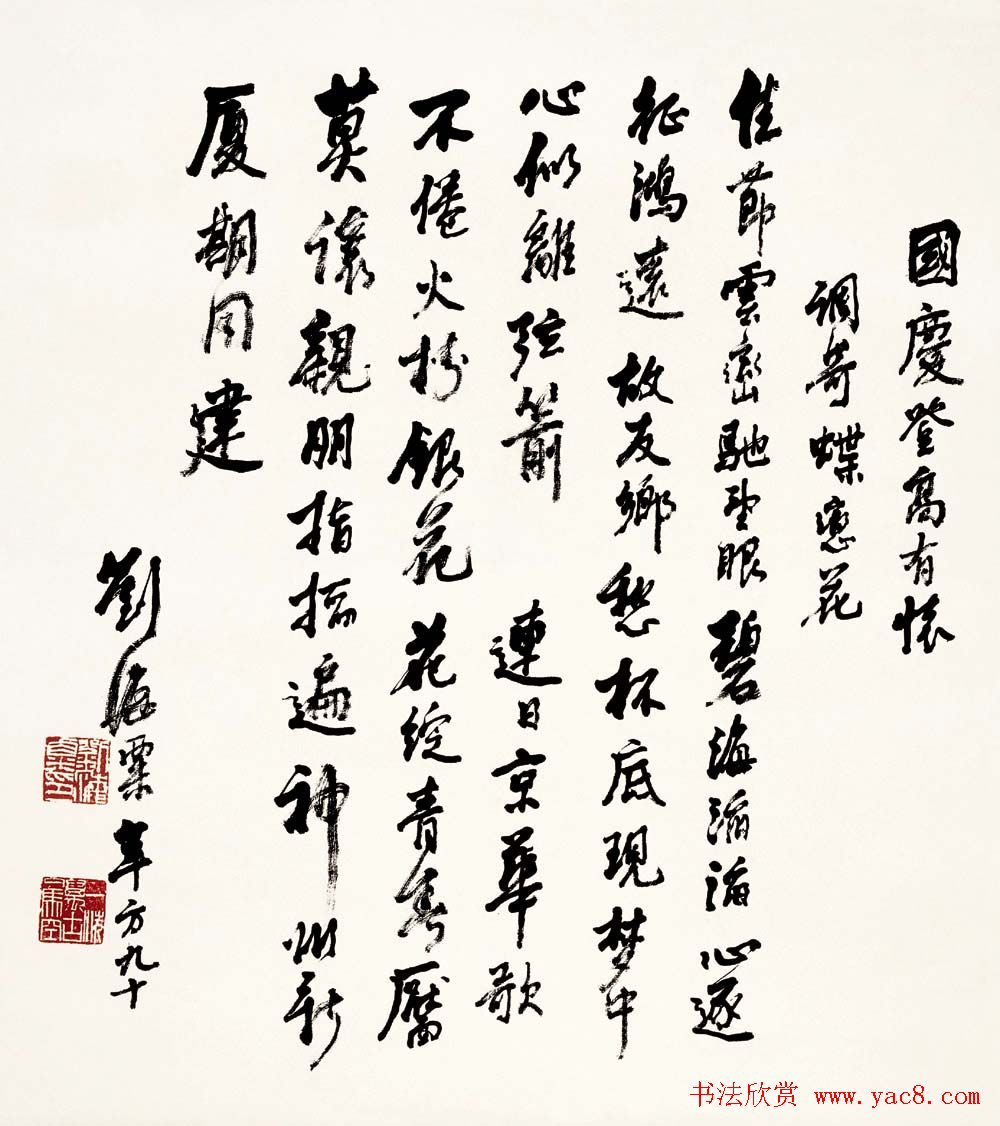 國慶登高有懷
調寄蝶戀花
佳節雲巒馳望眼碧海滔滔心逐
征鴻遠 故友鄉愁杯底現梦中
心似離弦箭 連日京華歌
不倦火樹銀花花綻青春靨
莫讓親朋指掐遍神州新
厦期同建
劉海粟年方九十
书法欣赏 www.yac8.com